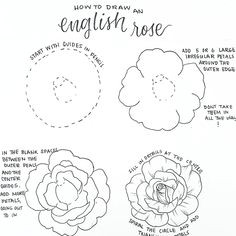 HOW TO DRAW AN
english rose
START WITH GUIDES IN PENCIL
ADD 5 OR 6 LARGE
IRREGULAR PETALS
AROUND THE
OUTER EDGE
DON'T
TAKE THEM
IN ALL
THE WAY!
IN THE BLANK SPACES
BETWEEN THE
OUTER PETALS
AND THE
CENTER
GUIDES,
ADD MORE
PETALS,
GOING OUT
TO IN
FILL IN DETAILS AT THE CENTER
SPIRAL THE CIRCLE AND ADD